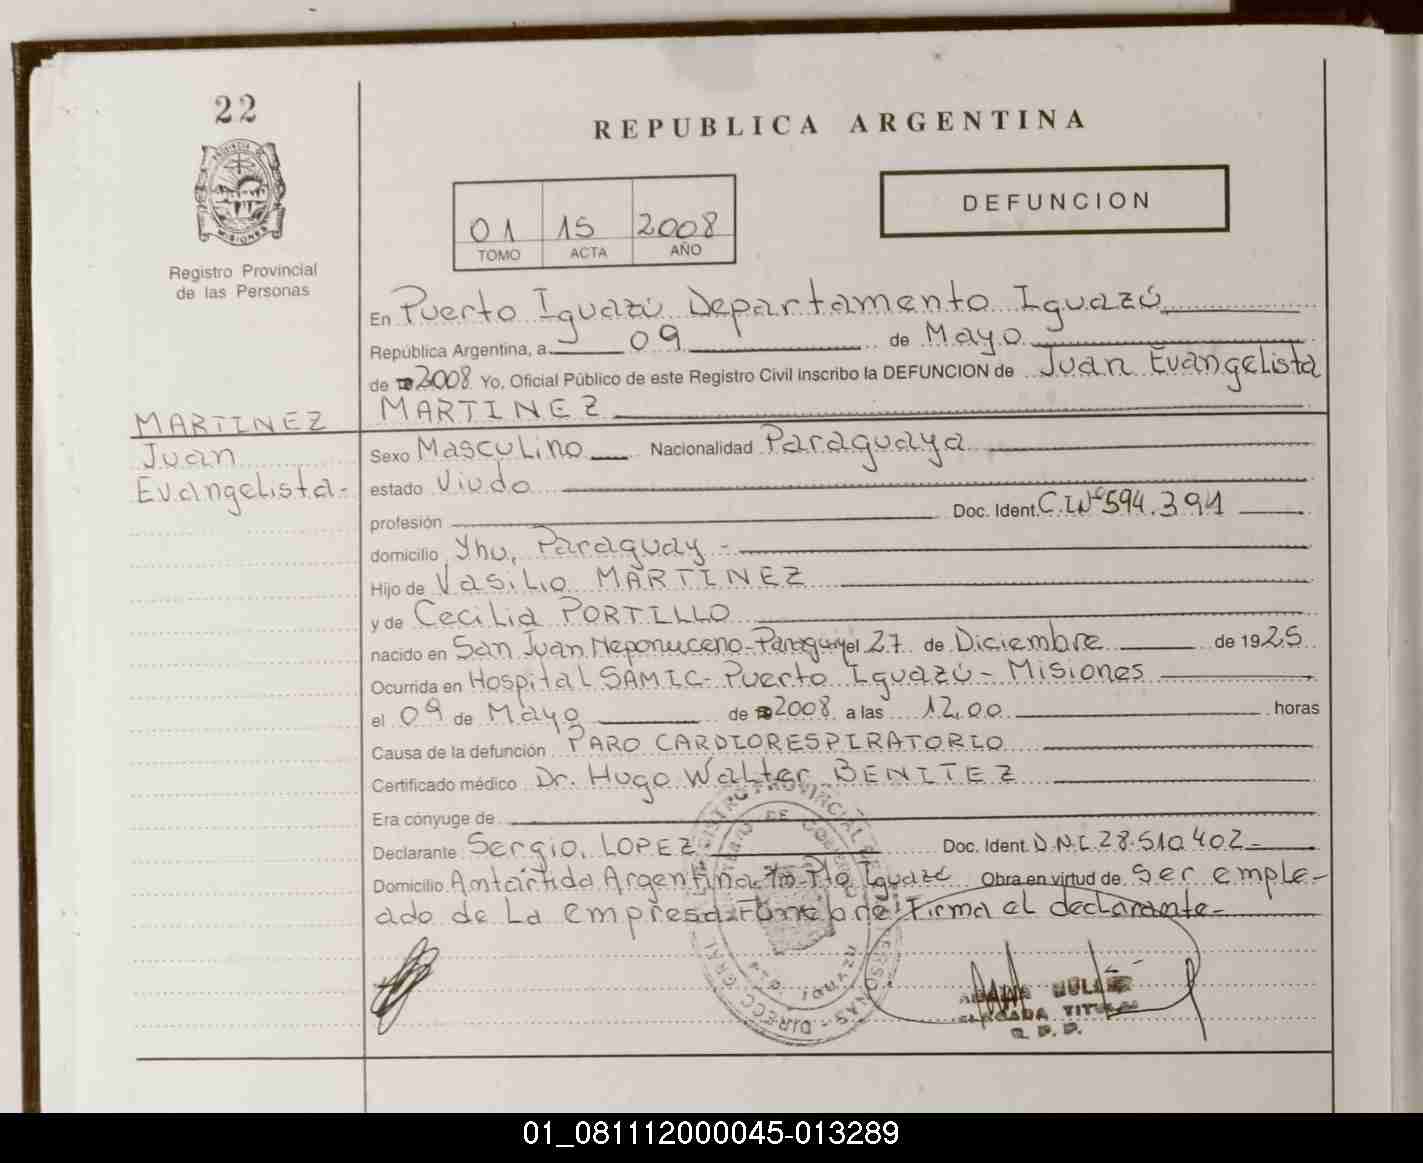 22
PROVINCIA DE
MISIONES
Registro Provincial
de las Personas
REPUBLICA ARGENTINA
01 15 2008
TOMO ACTA AÑO
DEFUNCION
En Puerto Iguazú Departamento Iguazú
República Argentina, a 09 de Mayo
de 2008 Yo, Oficial Público de este Registro Civil inscribo la DEFUNCION de Juan Evangelista
MARTINEZ
MARTINEZ
Juan
Evangelista-
Sexo Masculino Nacionalidad Paraguaya
estado Viudo
profesión Doc. Ident. C.I.Nº 594.391
domicilio Yhu, Paraguay -
Hijo de Vasilio MARTINEZ
y de Cecilia PORTILLO
nacido en San Juan Neponuceno-Paraguay el 27 de Diciembre de 1925
Ocurrida en Hospital SAMIC- Puerto Iguazú - Misiones
el 09 de Mayo de 2008 a las 12,00 horas
Causa de la defunción PARO CARDIORESPIRATORIO
Certificado médico Dr. Hugo Walter BENITEZ
Era cónyuge de
Declarante Sergio, LOPEZ Doc. Ident. D.N.I. 28.510.402-
Domicilio Antártida Argentina Pto Iguazú Obra en virtud de Ser emple-
ado de La empresa Fúnebre Firma el declarante-
TITULAR
R. P. P.
01_081112000045-013289